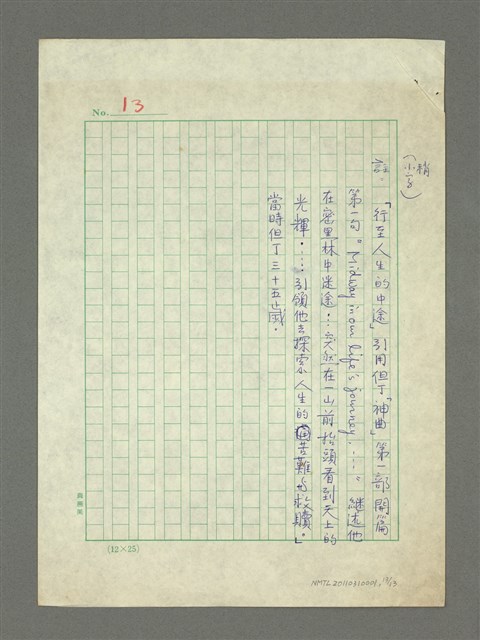 No. 13
（稍小一字）
註．「行至人生的中途」引用但丁「神曲」第一部開篇
第一句“Midway in our life's journey....”繼述他
在密里林中迷途…突然在一山前抬頭看到天上的
光輝．…引領他去探索人生的苦難與救贖。」
當時但丁三十五歲．
(12×25)